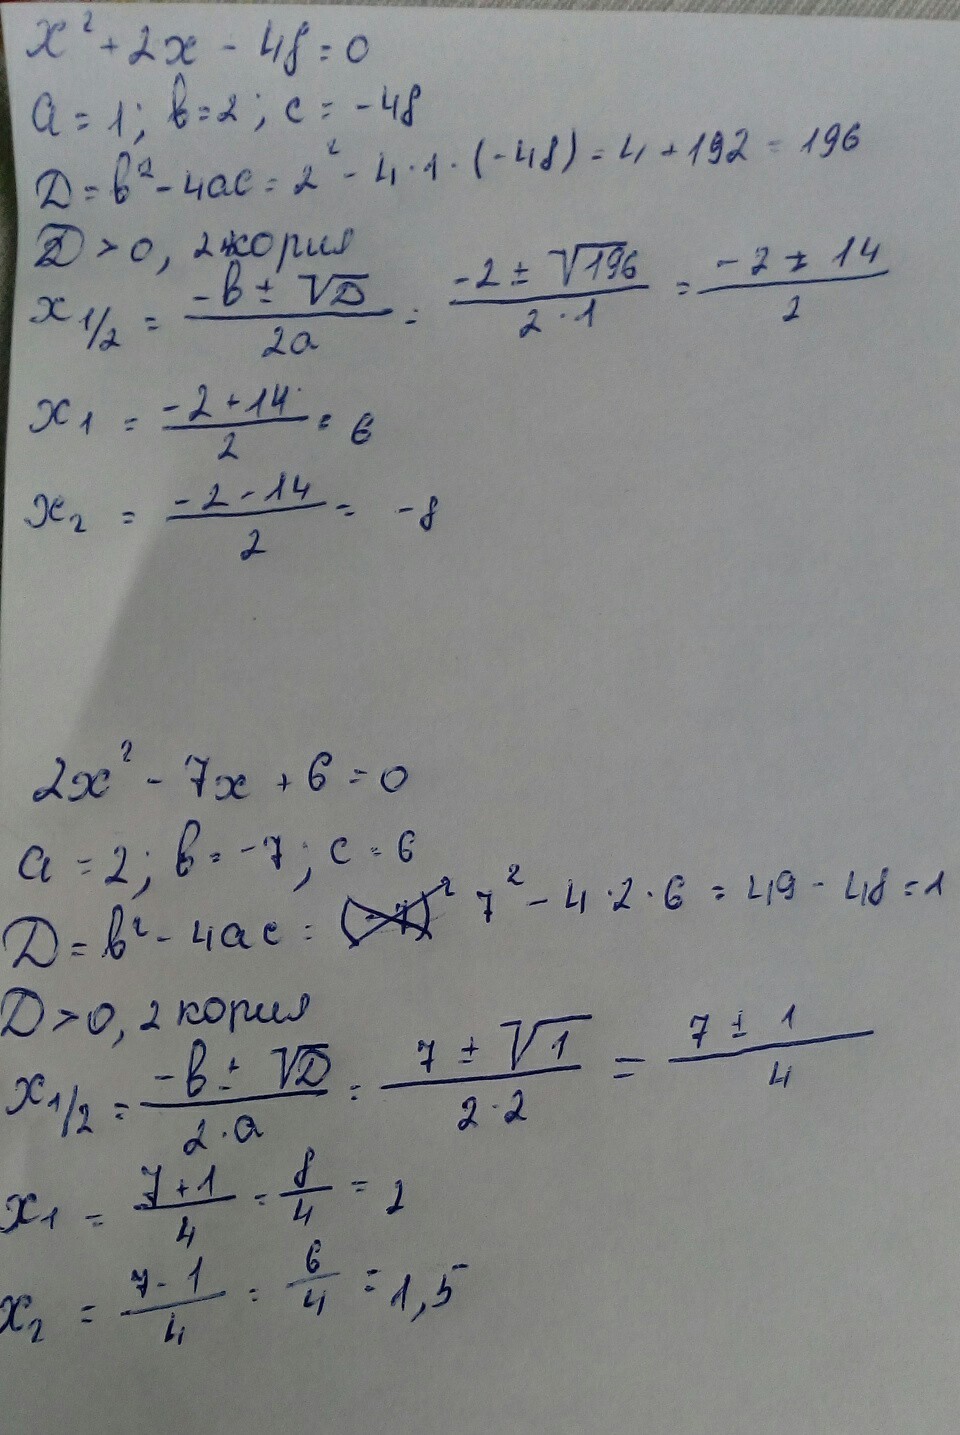 x² + 2x - 48 = 0
a = 1; b = 2; c = -48
D = b² - 4ac = 2² - 4·1·(-48) = 4 + 192 = 196
D > 0, 2 корня
x1/2 = (-b ± √D)/(2a) = (-2 ± √196)/(2·1) = (-2 ± 14)/2
x1 = (-2 + 14)/2 = 6
x2 = (-2 - 14)/2 = -8
2x² - 7x + 6 = 0
a = 2; b = -7; c = 6
D = b² - 4ac = 7² - 4·2·6 = 49 - 48 = 1
D > 0, 2 корня
x1/2 = (-b ± √D)/(2·a) = (7 ± √1)/(2·2) = (7 ± 1)/4
x1 = (7 + 1)/4 = 8/4 = 2
x2 = (7 - 1)/4 = 6/4 = 1,5